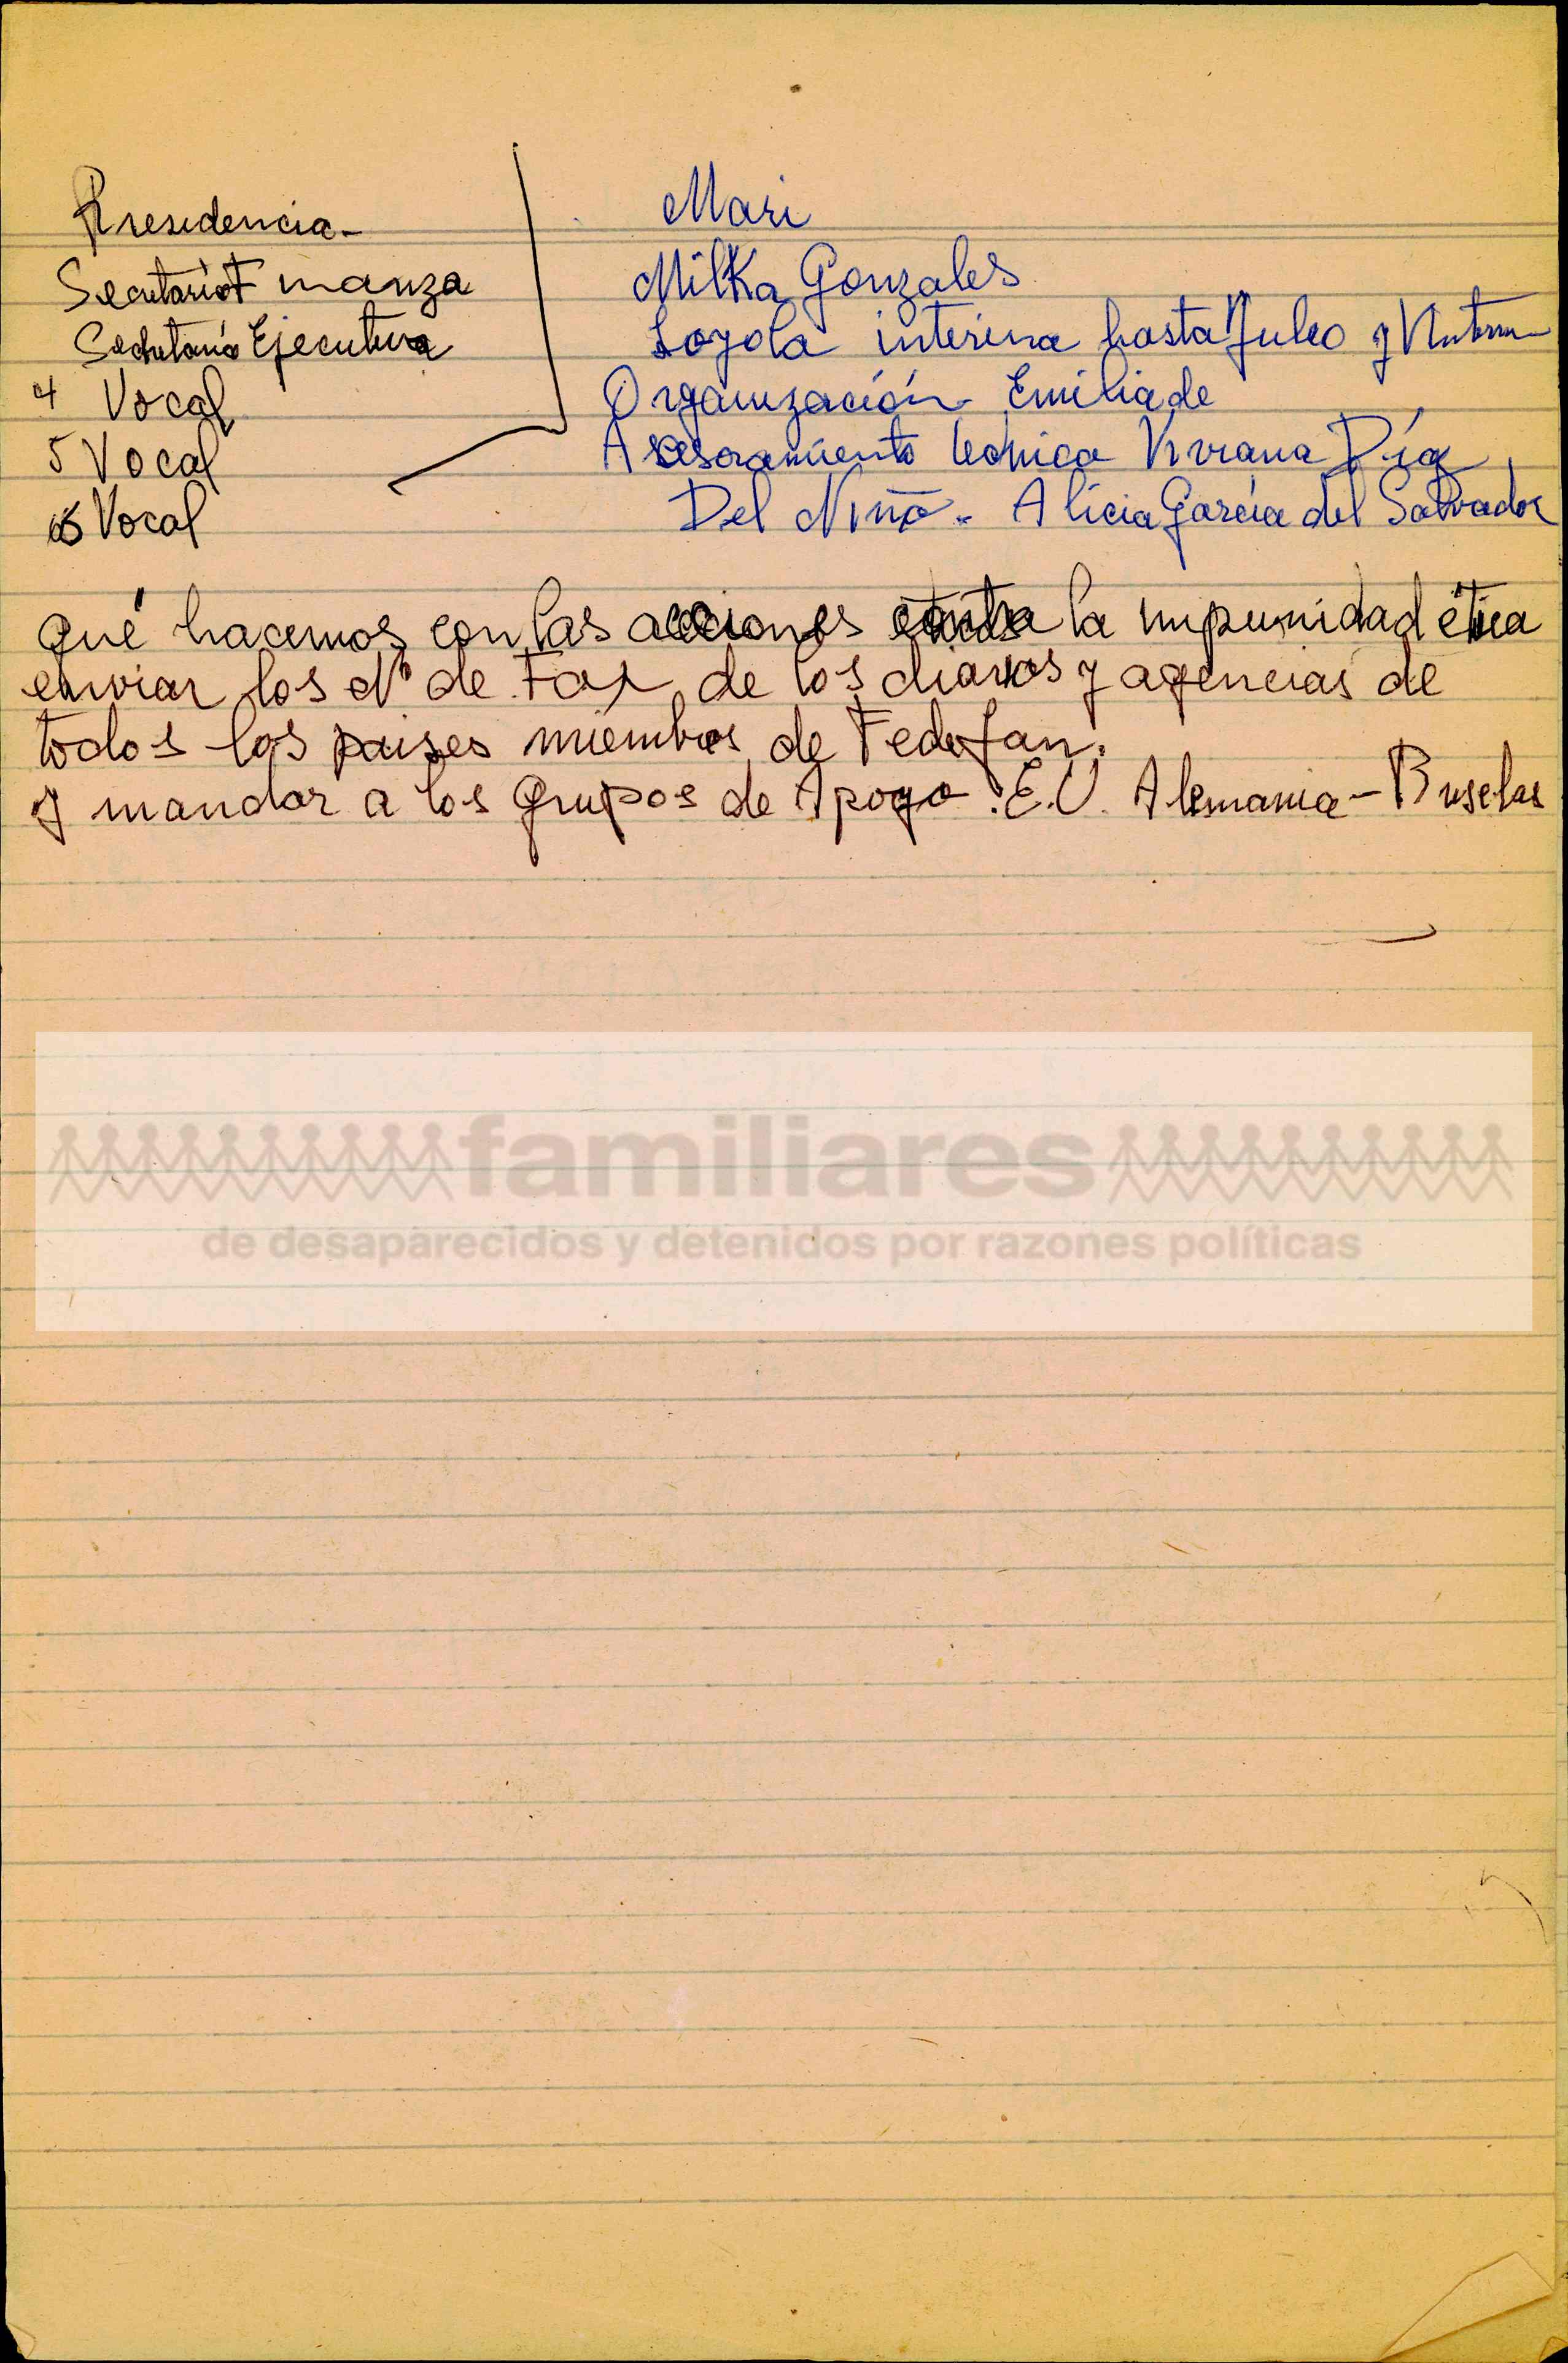 Presidencia - Mari
Secretariat manza Milka Gonzales
Secretaría Ejecutiva Loyola interina hasta Julio y
4 Vocal Organización - Emilia de
5 Vocal Asesoramiento tecnico Viviana Díaz
6 Vocal Del Niño - Alicia García del Salvador
Qué hacemos con las acciones contra la impunidad ética
enviar los Nº de Fax de los diarios y agencias de
todos los paises miembros de Fedefan.
y mandar a los grupos de Apoyo : E.U. Alemania - Bruselas
familiares
de desaparecidos y detenidos por razones políticas